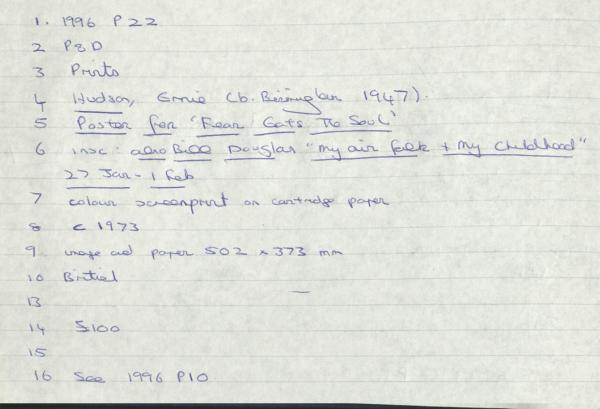 1. 1996 P22
2 P&D
3 Prints
4 Hudson, Ernie (b. Birmingham 1947).
5 Poster for 'Fear Eats The Soul'
6 insc: also Bill Douglas "My ain folk + My Childhood"
27 Jan - 1 Feb
7 colour screenprint on cartridge paper
8 c 1973
9 image and paper 502 x 373 mm
10 British
13 —
14 £100
15
16 See 1996 P10